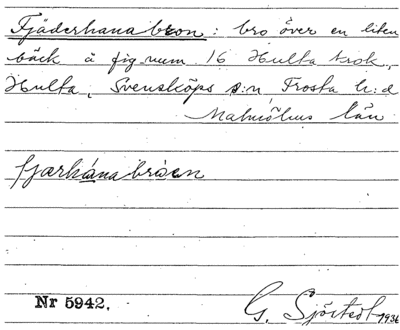 Fjäderhanabron: bro över en liten
bäck å fig.num 16 Hulta trok,
Hulta, Svensköps s:n Frosta h:d
Malmöhus län
fjærhánabroen
Nr 5942.
G. Sjöstedt 1936